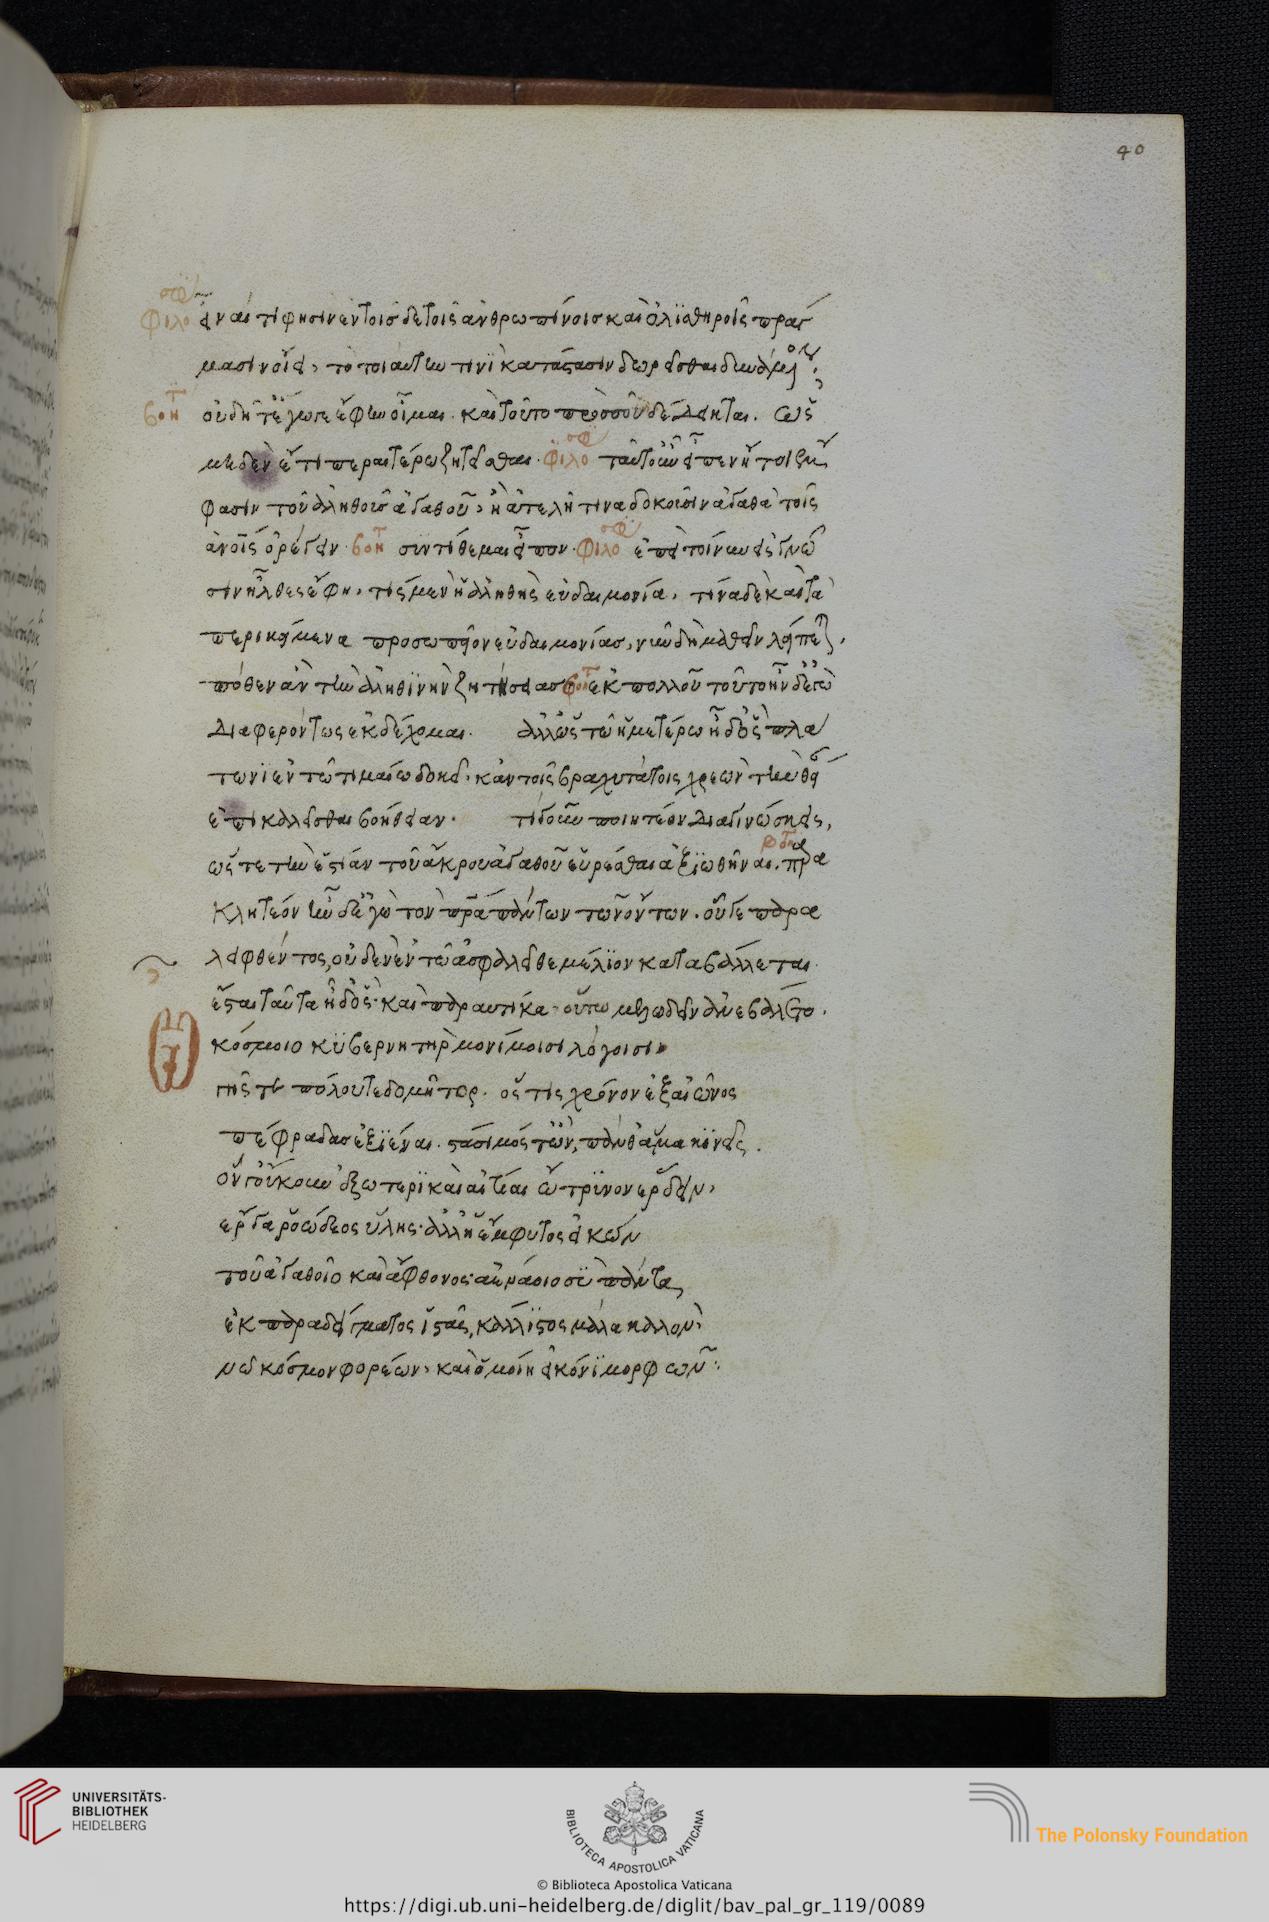 40
φιλοσοφ εἶναι τί φησιν ἐν τοῖσδε τοῖς ἀνθρωπίνοισ καὶ ὀλϊσθηροῖς πράγ
μασιν οἴει, τὸ τοιαύτην τινὶ κατάστασιν δωρεῖσθαι δυνάμενον;
βοητ οὐδὴτ ἔγωγε ἔφην οἶμαι. καὶ τοῦτο πρὸς σοῦ δέδεικται. ὡς
μηδὲν ἔτι περαιτέρω ζητεῖσθαι. φιλοσοφ ταῦτ οὖν εἶπεν ἢ τοι
φασιν τοῦ ἀληθοῦσ ἀγαθοῦ, ἢ ἀτελῆ τινα δοκοῦσιν ἀγαθὰ τοῖς
ἀνοῖς ὀρέγειν. βοητ συντίθεμαι εἶπον. φιλοσοφ ἐπεὶ τοίνυν εἰς γνῶ
σιν ἦλθες ἔφη, τίς μὲν ἡ ἀληθὴς εὐδαιμονία, τίνα δὲ καὶ τὰ
περικείμενα προσωπεῖον εὐδαιμονίασ, νῦν δὴ μαθεῖν λείπεται,
πόθεν ἂν τὴν ἀληθϊνὴν ζητήσειασ βοητ ἐκ πολλοῦ τοῦτο ἦν δ' ἐγὼ
διαφερόντως ἐκδέχομαι. ἀλλ' ὡς τῶ ἡμετέρω πλά
τωνϊ ἐν τῶ τιμαίω δοκεῖ. κἂν τοῖς βραχυτάτοις χρεὼν τὴν θεί
ἐπικαλεῖσθαι βοήθειαν. τί γοῦν ποιητέον διαγινώσκεις,
ὥς τε τὴν ἑστίαν τοῦ ἄκρου ἀγαθοῦ εὑρέσθαι ἀξϊωθῆναι. πρα
κλητέον ἦν δ' ἐγὼ τὸν πρα πάντων τῶν ὄντων. οὗ γε παρα
λειφθέντος, οὐδενὲν τῶ ἀσφαλεῖ θεμέλϊον καταβάλλεται.
καὶ παραυτίκα. οὕτω μελωδεῖν ἀνεβάλετο.
κόσμοιο κϋβερνητὴρ μονίμοισι λόγοισι
γῆς τε πόλου τε δομῆτορ. ὅς τις χρόνον ἐξ αἰῶνος
πέφραδασ ἐξϊέναι. στάσιμός τ' ὢν, πάνθ' ἅμα κϊνεῖς.
ὃν γ' οὔκουν ἐξωτερϊκαὶ αἰτίαι ὤτρϊνον ἔρδειν,
ἔργα ῥοώδεος ὕλης. ἀλλ' ἡ ἔμφυτος εἰκὼν
τοῦ ἀγαθοῖο καὶ ἄφθονος. αἰνμάοιο σϋ πάντα
ἐκ παραδείγματος ϊστᾶς, κάλλϊστος μάλα καλλον
νῶ κόσμον φορέων, καὶ ὁμοίη εἰκόνϊ μορφῶν.
UNIVERSITÄTS-
BIBLIOTHEK
HEIDELBERG
BIBLIOTECA APOSTOLICA VATICANA
The Polonsky Foundation
© Biblioteca Apostolica Vaticana
https://digi.ub.uni-heidelberg.de/diglit/bav_pal_gr_119/0089